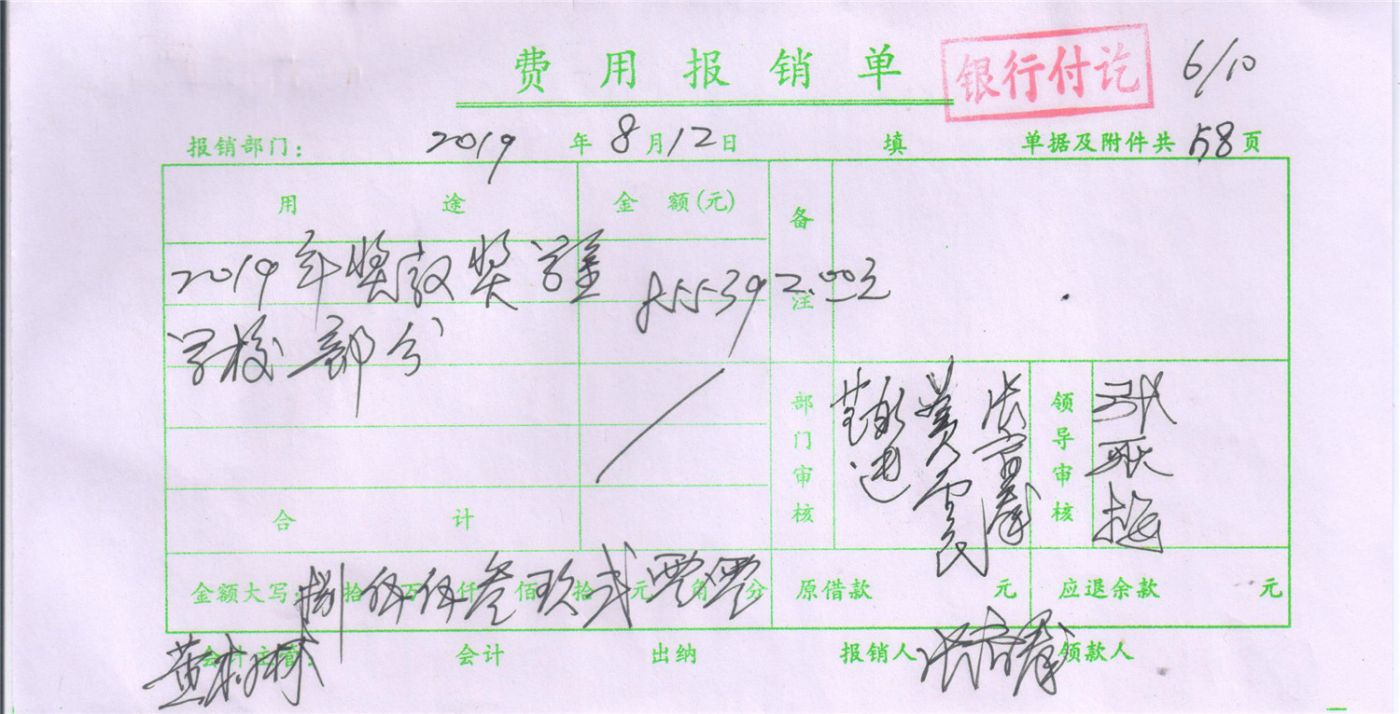 费用报销单
银行付讫
6/10
报销部门： 2019 年 8 月 12 日 填 单据及附件共 58 页
用途 金额(元) 备注
2019年奖教奖学金 855392.00元
学校部分
部门审核 领导审核
合计
金额大写 捌拾伍万伍仟叁佰玖拾贰元零角零分 原借款 元 应退余款 元
会计主管： 会计 出纳 报销人 领款人